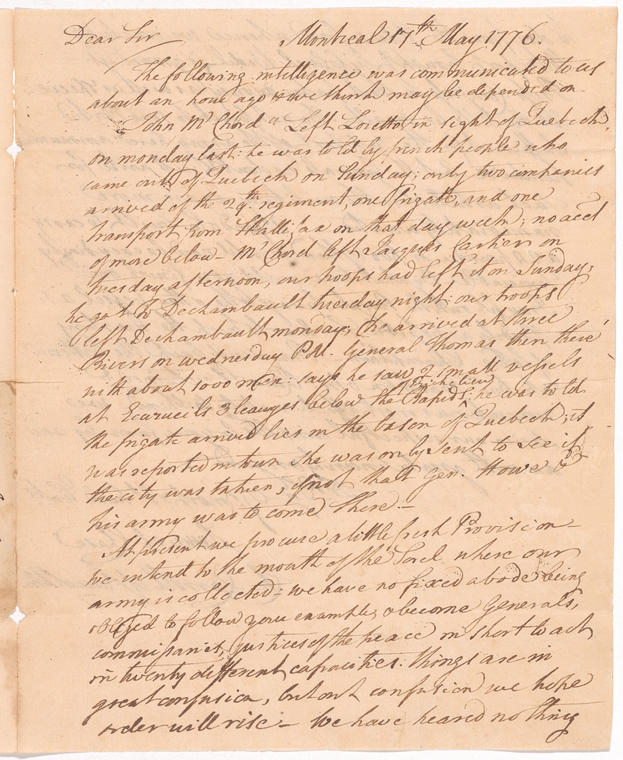 Dear Sir Montreal 17th May 1776.
The following intelligence was communicated to us
about an hour ago & we think may be depended on
John McChord Left Lorette, in sight of Quebeck,
on monday last: he was told by french people who
came out of Quebeck on Sunday; only two companies
arrived of the 29th regiment, one frigate, and one
transport from Hallifax on that day week; no acct
of more below - McChord left Jacques Cartier on
tuesday afternoon, our troops had left it on Sunday;
he got to Dechambault tuesday night: our troops
left Dechambault monday, he arrived at three
Rivers on wednesday P.M. General Thomas then there
with about 1000 men: says he saw 2 small vessels
at Ecureuils 3 leauges below the Rapids of Richelieu; he was told
the frigate arrived lies in the bason of Quebeck; it
was reported in town she was only sent to see if
the city was taken, if not that Gen. Howe &
his army was to come there. -
At present we procure a little fresh Provision -
we intend to the mouth of the Sorel where our
army is collected - we have no fixed abode being
obliged to follow your example, & become Generals,
commissaries, justices of the peace in short to act
in twenty different capacities. things are in
great confusion, but out confusion we hope
order will rise - We have heared nothing